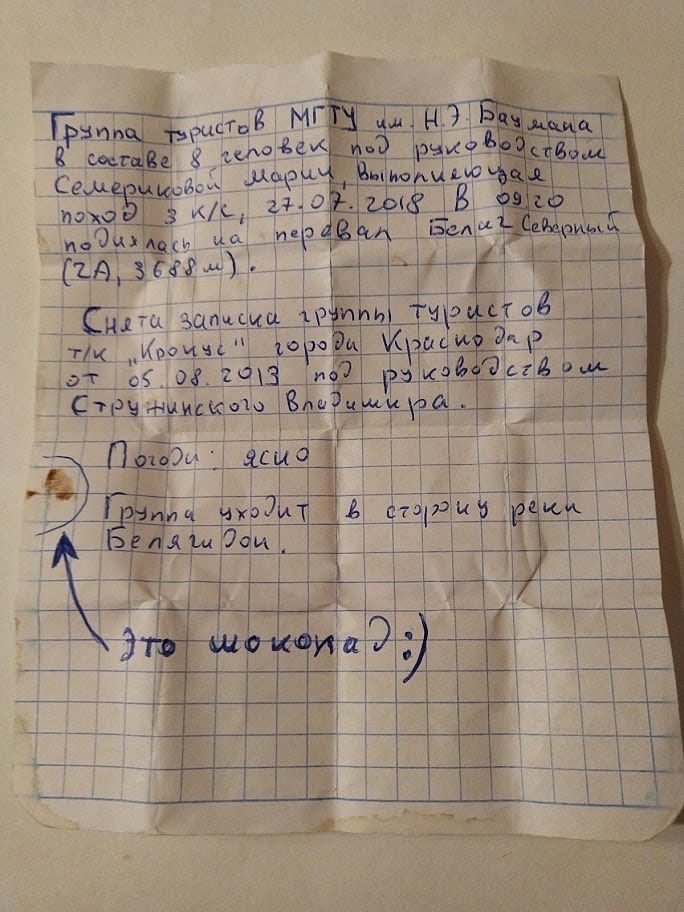 Группа туристов МГТУ им. Н.Э. Баумана
в составе 8 человек под руководством
Семериковой Марии, выполняющая
поход 3 к/с, 27.07.2018 в 09 20
поднялась на перевал Белаг Северный
(2А, 3688 м).
Снята записка группы туристов
т/к „Крокус" города Краснодар
от 05.08.2013 под руководством
Стружинского Владимира.
Погода: ясно
Группа уходит в сторону реки
Белягидон.
Это шоколад :)